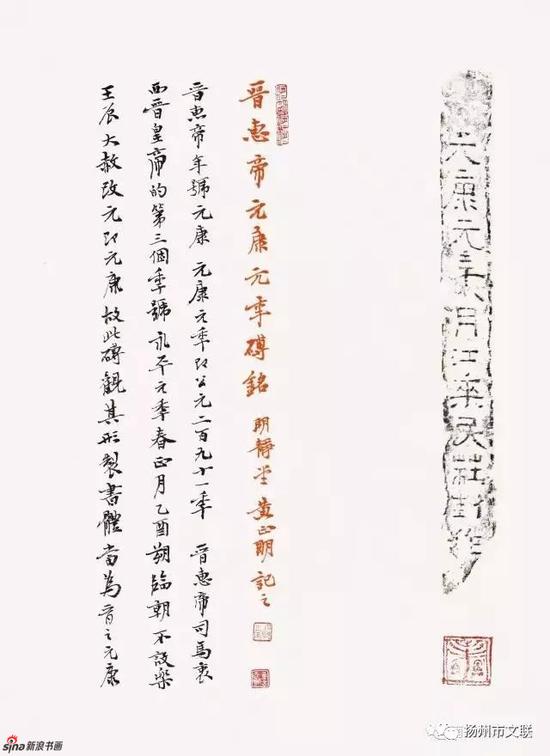 元康元年
晉惠帝元康元年磚銘 明靜堂黃正明記之
晉惠帝年號元康 元康元年即公元二百九十一年 晉惠帝司馬衷
西晉皇帝的第三個年號 永平元年春正月乙酉朔臨朝不設樂
壬辰大赦改元即元康 故此磚觀其形製書體當為晉之元康
sina新浪书画
扬州市文联